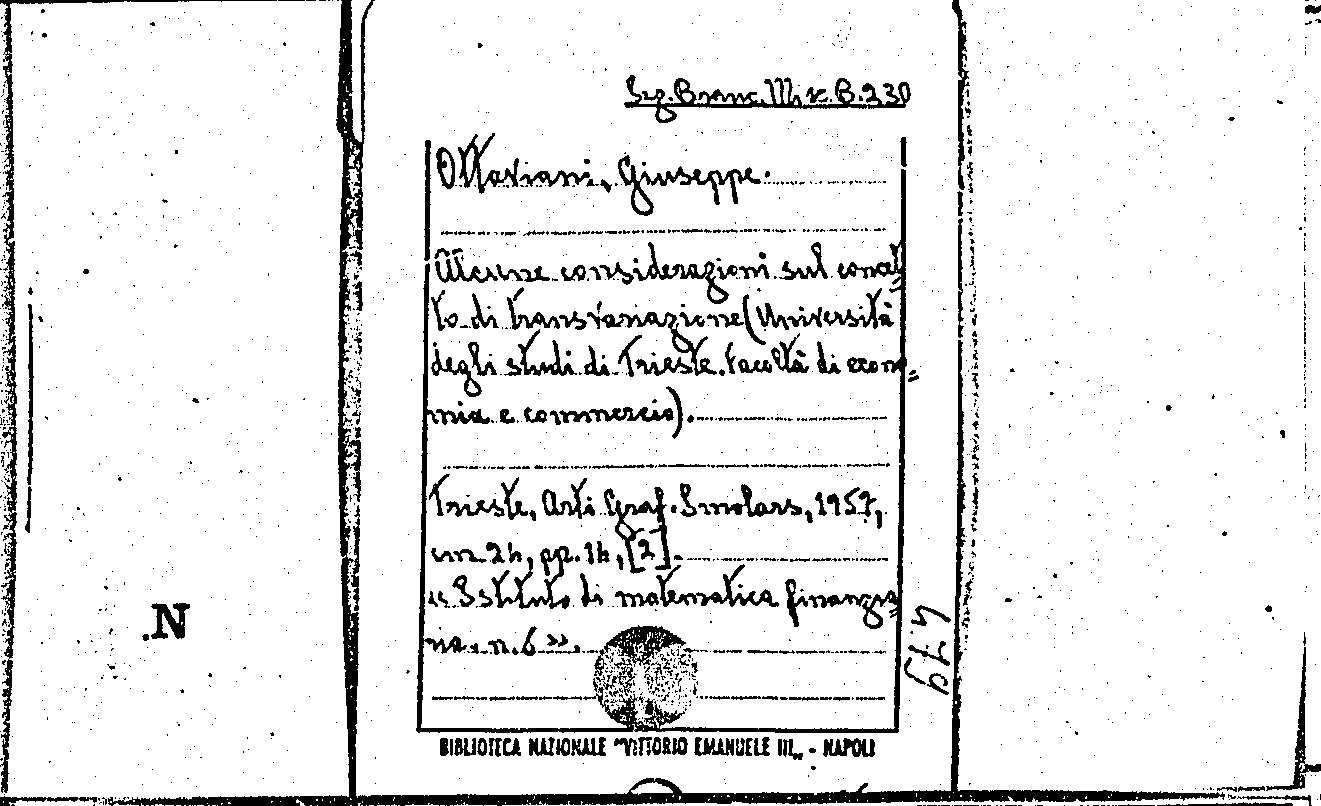 Seg. Branc. Misc. B. 230
Ottaviani, Giuseppe.
Alcune considerazioni sul concet=
to di transvariazione (Università
degli studi di Trieste. Facoltà di econo=
mia e commercio).
Trieste, Arti Graf. Smolars, 1957,
cm. 24, pp. 14, [2].
« Istituto di matematica finanzia=
ria. n. 6 ».
479
.N
BIBLIOTECA NAZIONALE "VITTORIO EMANUELE III„ - NAPOLI